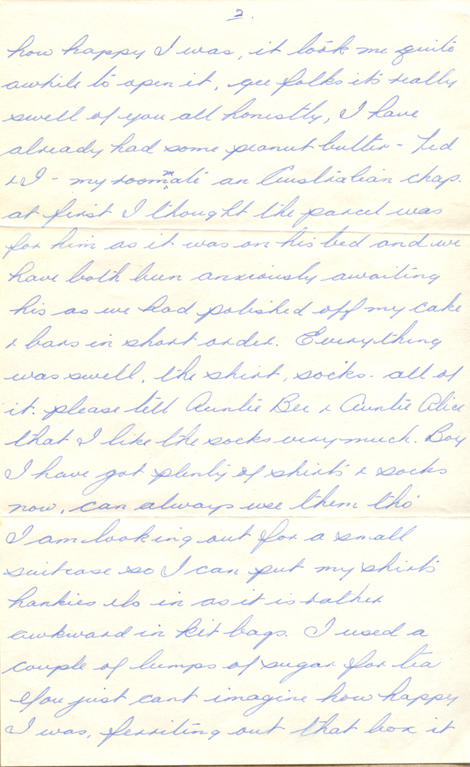 2.
how happy I was, it took me quite
awhile to open it, gee folks it's really
swell of you all honestly, I have
already had some peanut butter - Ted
& I - my roommate an Australian chap.
at first I thought the parcel was
for him as it was on his bed and we
have both been anxiously awaiting
his as we had polished off my cake
& bars in short order. Everything
was swell, the shirt, socks - all of
it. please tell Auntie Bee & Auntie Alice
that I like the socks very much. Boy
I have got plenty of shirts & socks
now, can always use them tho'
I am looking out for a small
suitcase so I can put my shirts
hankies etc in as it is rather
awkward in kit bags. I used a
couple of lumps of sugar for tea
You just cant imagine how happy
I was, ferriting out that box it